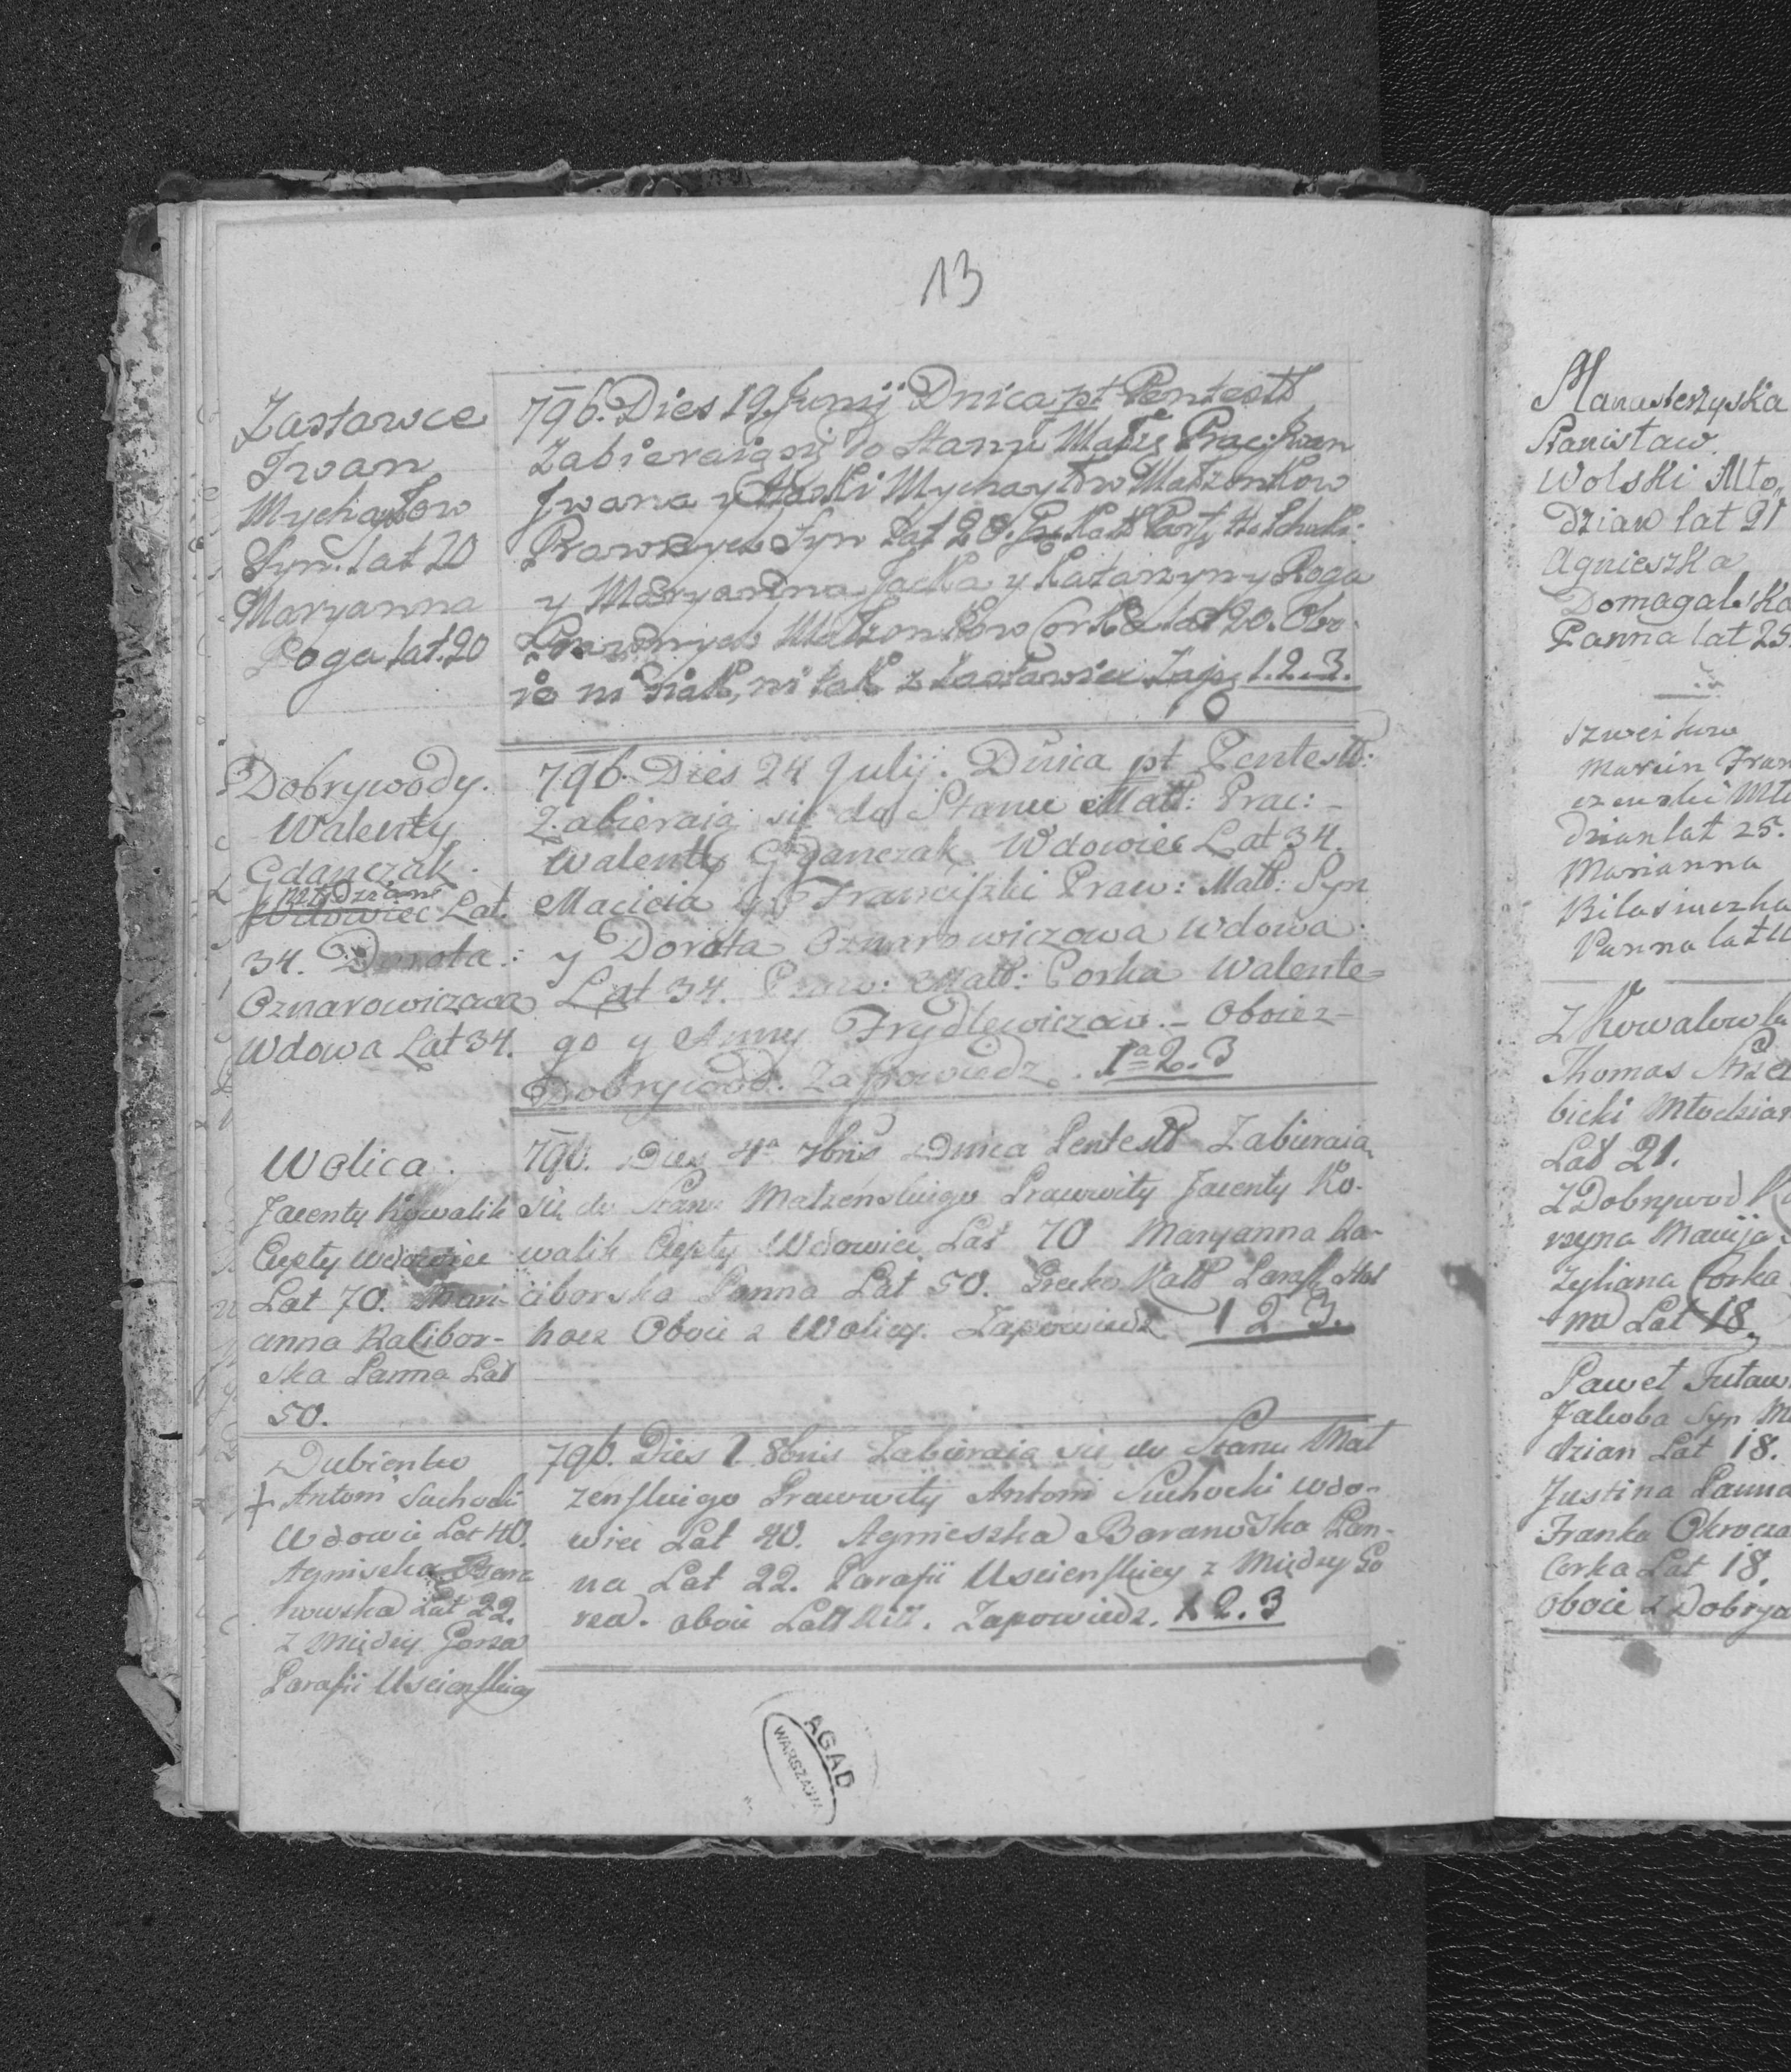 13
Zastawce
Iwan
Mychayłow
Syn. lat 20
Maryanna
Roga lat. 20
796. Dies 19 Junij Dnica pt Pentest
Zabieraią się do Stanu Prac: Iwan
Iwana y Mychayłow Małzonkow
Prawnych Syn Lat 20.
y Maryanna Jacka y Katarzyny Roga
Prawnych Małzonkow Corka lat 20. Obo
z Zap. 1. 2. 3.
Dobrywody.
Walenty
Gdanczak.
Młodzian
Wdowiec Lat.
34. Dorota:
Oznarowiczowa
Wdowa Lat 34.
796. Dies 24 Julij. Dnica pt Pentest:
Zabieraią się do Stanu Małż: Prac:
Walenty Gdanczak Wdowiec Lat 34.
Macieia y Franciszki Praw: Małż: Syn
y Dorota Oznarowiczowa Wdowa.
Lat 34. Praw: Małż: Corka Walente=
go y Anny Frydlewiczow. - Oboiez-
Dobrywod. Zapowiedz. 1a 2. 3
Wolica.
Jacenty Kowalik
Cięzty Wdowiec
Lat 70. Mari-
anna Racibor-
ska Panna Lat
50.
796. Dies 4a 7bris Dnica Pentest Zabieraią
się do Stanu Małzenskiego Pracowity Jacenty Ko-
walik Wdowiec Lat 70 Maryanna Ra-
ciborska Panna Lat 50.
Oboie z Wolicy. Zapowiedz 1 2 3.
Dubienko
+ Antoni Suchocki
Wdowie Lat 40.
Agniszka Bara
nowska Lat 22.
z Między Gorza
Parafii Uscienskiey
796. Dies 2 8bris Zabieraią sie do Stanu Mał
zenskiego Pracowity Antoni Suchocki Wdo-
wiec Lat 40. Agnieszka Baranowska Pan-
na Lat 22. Parafii Uscienskiey z Między Go
rza. oboie Zapowiedz. 1. 2. 3
AGAD
WARSZAWA
Manasterzyska
Stanisław
Wolski Mło,
dzian lat 21
Agnieszka
Domagalska
Panna lat 25.
Szweikow
Marcin Fran
Mło
dzian lat 25.
Marianna
Panna lat
Z Kowalowka
Thomas
bicki Młodzian
Lat 21.
Z Dobrywod
Corka
Lat 18.
Paweł
Jakoba Syn Mł
dzian Lat 18.
Justina Panna
Franka
Corka Lat 18.
Oboie z Dobryw